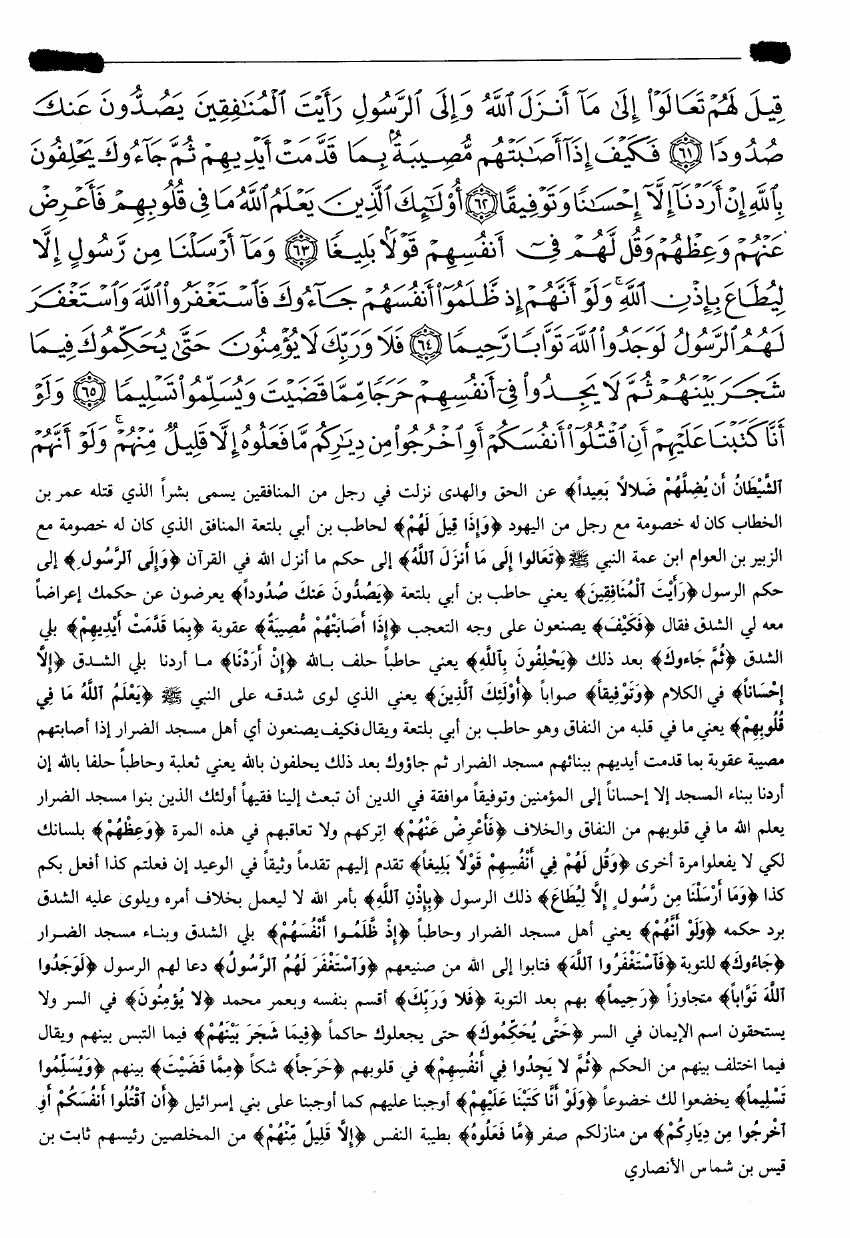 قِيلَ لَهُمْ تَعَالَوْا۟ إِلَىٰ مَآ أَنزَلَ ٱللَّهُ وَإِلَى ٱلرَّسُولِ رَأَيْتَ ٱلْمُنَٰفِقِينَ يَصُدُّونَ عَنكَ
صُدُودًا ٦١ فَكَيْفَ إِذَآ أَصَٰبَتْهُم مُّصِيبَةٌۢ بِمَا قَدَّمَتْ أَيْدِيهِمْ ثُمَّ جَآءُوكَ يَحْلِفُونَ
بِٱللَّهِ إِنْ أَرَدْنَآ إِلَّآ إِحْسَٰنًا وَتَوْفِيقًا ٦٢ أُو۟لَٰٓئِكَ ٱلَّذِينَ يَعْلَمُ ٱللَّهُ مَا فِى قُلُوبِهِمْ فَأَعْرِضْ
عَنْهُمْ وَعِظْهُمْ وَقُل لَّهُمْ فِىٓ أَنفُسِهِمْ قَوْلًۢا بَلِيغًا ٦٣ وَمَآ أَرْسَلْنَا مِن رَّسُولٍ إِلَّا
لِيُطَاعَ بِإِذْنِ ٱللَّهِ ۚ وَلَوْ أَنَّهُمْ إِذ ظَّلَمُوٓا۟ أَنفُسَهُمْ جَآءُوكَ فَٱسْتَغْفَرُوا۟ ٱللَّهَ وَٱسْتَغْفَرَ
لَهُمُ ٱلرَّسُولُ لَوَجَدُوا۟ ٱللَّهَ تَوَّابًا رَّحِيمًا ٦٤ فَلَا وَرَبِّكَ لَا يُؤْمِنُونَ حَتَّىٰ يُحَكِّمُوكَ فِيمَا
شَجَرَ بَيْنَهُمْ ثُمَّ لَا يَجِدُوا۟ فِىٓ أَنفُسِهِمْ حَرَجًا مِّمَّا قَضَيْتَ وَيُسَلِّمُوا۟ تَسْلِيمًا ٦٥ وَلَوْ
أَنَّا كَتَبْنَا عَلَيْهِمْ أَنِ ٱقْتُلُوٓا۟ أَنفُسَكُمْ أَوِ ٱخْرُجُوا۟ مِن دِيَٰرِكُم مَّا فَعَلُوهُ إِلَّا قَلِيلٌ مِّنْهُمْ ۖ وَلَوْ أَنَّهُمْ
ٱلشَّيْطَانُ أَن يُضِلَّهُمْ ضَلالاً بَعِيداً﴾ عن الحق والهدى نزلت في رجل من المنافقين يسمى بشراً الذي قتله عمر بن
الخطاب كان له خصومة مع رجل من اليهود ﴿وَإِذَا قِيلَ لَهُمْ﴾ لحاطب بن أبي بلتعة المنافق الذي كان له خصومة مع
الزبير بن العوام ابن عمة النبي ﷺ ﴿تَعَالوا إِلَى مَا أَنزَلَ ٱللَّهُ﴾ إلى حكم ما أنزل الله في القرآن ﴿وَإِلَى ٱلرَّسُولِ﴾ إلى
حكم الرسول ﴿رَأَيْتَ ٱلْمُنَافِقِينَ﴾ يعني حاطب بن أبي بلتعة ﴿يَصُدُّونَ عَنكَ صُدُوداً﴾ يعرضون عن حكمك إعراضاً
معه لي الشدق فقال ﴿فَكَيْفَ﴾ يصنعون على وجه التعجب ﴿إِذَا أَصَابَتْهُمْ مُّصِيبَةٌ﴾ عقوبة ﴿بِمَا قَدَّمَتْ أَيْدِيهِمْ﴾ بلي
الشدق ﴿ثُمَّ جَاءوكَ﴾ بعد ذلك ﴿يَحْلِفُونَ بِٱللَّهِ﴾ يعني حاطباً حلف بالله ﴿إِنْ أَرَدْنَا﴾ ما أردنا بلي الشدق ﴿إِلَّا
إِحْسَاناً﴾ في الكلام ﴿وَتَوْفِيقاً﴾ صواباً ﴿أُوْلَئِكَ ٱلَّذِينَ﴾ يعني الذي لوى شدقه على النبي ﷺ ﴿يَعْلَمُ ٱللَّهُ مَا فِي
قُلُوبِهِمْ﴾ يعني ما في قلبه من النفاق وهو حاطب بن أبي بلتعة ويقال فكيف يصنعون أي أهل مسجد الضرار إذا أصابتهم
مصيبة عقوبة بما قدمت أيديهم ببنائهم مسجد الضرار ثم جاؤوك بعد ذلك يحلفون بالله يعني ثعلبة وحاطباً حلفا بالله إن
أردنا ببناء المسجد إلا إحساناً إلى المؤمنين وتوفيقاً موافقة في الدين أن تبعث إلينا فقيهاً أولئك الذين بنوا مسجد الضرار
يعلم الله ما في قلوبهم من النفاق والخلاف ﴿فَأَعْرِضْ عَنْهُمْ﴾ اتركهم ولا تعاقبهم في هذه المرة ﴿وَعِظْهُمْ﴾ بلسانك
لكي لا يفعلوا مرة أخرى ﴿وَقُل لَهُمْ فِي أَنْفُسِهِمْ قَوْلاً بَلِيغاً﴾ تقدم إليهم تقدماً وثيقاً في الوعيد إن فعلتم كذا أفعل بكم
كذا ﴿وَمَا أَرْسَلْنَا مِن رَّسُولٍ إِلَّا لِيُطَاعَ﴾ ذلك الرسول ﴿بِإِذْنِ ٱللَّهِ﴾ بأمر الله لا ليعمل بخلاف أمره ويلوى عليه الشدق
برد حكمه ﴿وَلَوْ أَنَّهُمْ﴾ يعني أهل مسجد الضرار وحاطباً ﴿إِذْ ظَّلَمُوا أَنْفُسَهُمْ﴾ بلي الشدق وبناء مسجد الضرار
﴿جَاءُوكَ﴾ للتوبة ﴿فَٱسْتَغْفَرُوا ٱللَّهَ﴾ فتابوا إلى الله من صنيعهم ﴿وَٱسْتَغْفَرَ لَهُمُ ٱلرَّسُولُ﴾ دعا لهم الرسول ﴿لَوَجَدُوا
ٱللَّهَ تَوَّاباً﴾ متجاوزاً ﴿رَحِيماً﴾ بهم بعد التوبة ﴿فَلا وَرَبِّكَ﴾ أقسم بنفسه وبعمر محمد ﴿لا يُؤْمِنُونَ﴾ في السر ولا
يستحقون اسم الإيمان في السر ﴿حَتَّى يُحَكِّمُوكَ﴾ حتى يجعلوك حاكماً ﴿فِيمَا شَجَرَ بَيْنَهُمْ﴾ فيما التبس بينهم ويقال
فيما اختلف بينهم من الحكم ﴿ثُمَّ لا يَجِدُوا فِي أَنْفُسِهِمْ﴾ في قلوبهم ﴿حَرَجاً﴾ شكاً ﴿مِمَّا قَضَيْتَ﴾ بينهم ﴿وَيُسَلِّمُوا
تَسْلِيماً﴾ يخضعوا لك خضوعاً ﴿وَلَوْ أَنَّا كَتَبْنَا عَلَيْهِمْ﴾ أوجبنا عليهم كما أوجبنا على بني إسرائيل ﴿أَنِ ٱقْتُلُوا أَنْفُسَكُمْ أَوِ
ٱخْرُجوا مِن دِيَارِكُمْ﴾ من منازلكم صفر ﴿مَّا فَعَلُوهُ﴾ بطيبة النفس ﴿إِلَّا قَلِيلٌ مِّنْهُمْ﴾ من المخلصين رئيسهم ثابت بن
قيس بن شماس الأنصاري